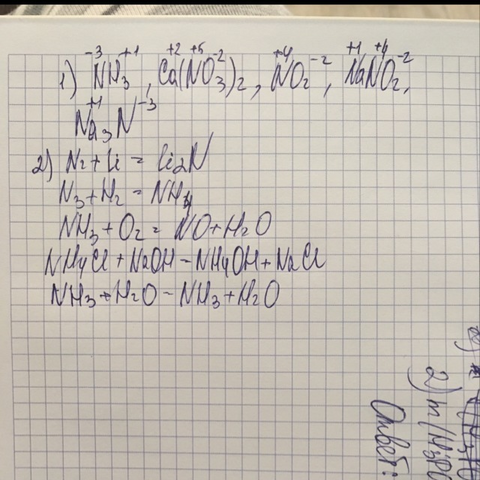 1) N⁻³H₃⁺¹, Ca⁺²(N⁺⁵O₃⁻²)₂, N⁺⁴O₂⁻², Na⁺¹N⁺⁴O₂⁻²,
Na₃⁺¹N⁻³
2) N₂ + Li = Li₂N
N₃ + H₂ = NH₄
NH₃ + O₂ = NO + H₂O
NH₄Cl + NaOH - NH₄OH + NaCl
NH₃ + H₂O - NH₃ + H₂O
2) m(H₃PO
Ответ: